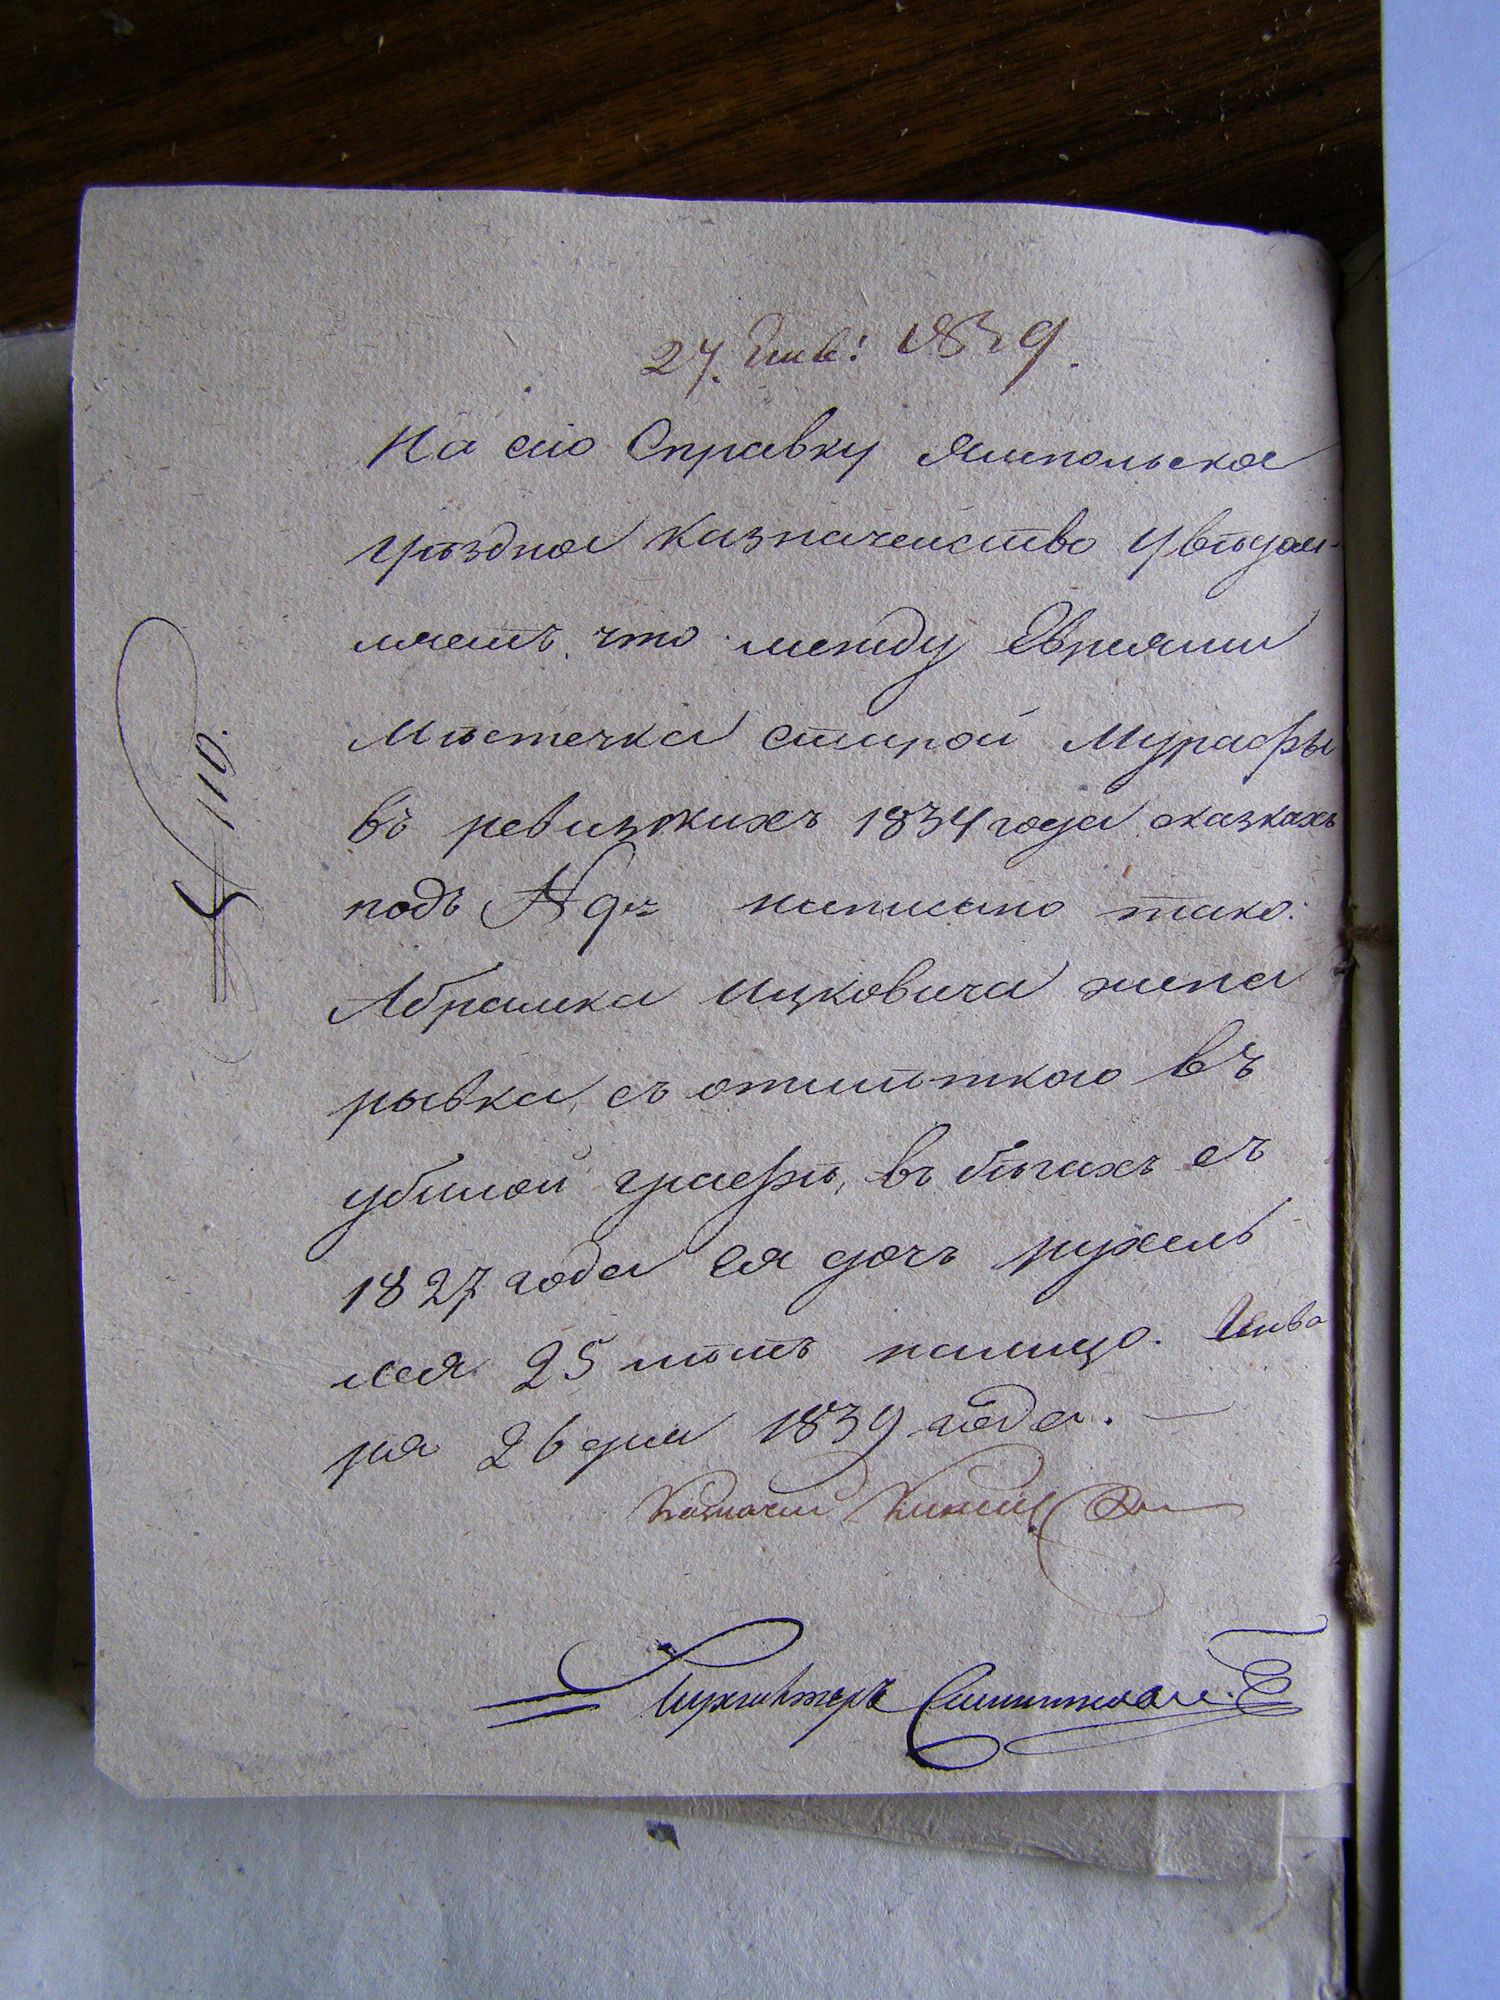 27. Янв: 1839.
На сію Справку Ямпольское
уѣздное казначейство увѣдом-
ляетъ, что между Евреями
Мѣстечка старой Мурафы
въ ревизкихъ 1834 года сказкахъ
подъ № написано тако:
Абрамка Ицковича жена
рывка, съ отмѣткою въ
убылой графѣ, въ бѣгахъ съ
1827 года ея дочь рухель
лея 25 лѣтъ налицо. Янва
ря 26 дня 1839 года. —
Казначей
Бухгалтеръ
№ 110.